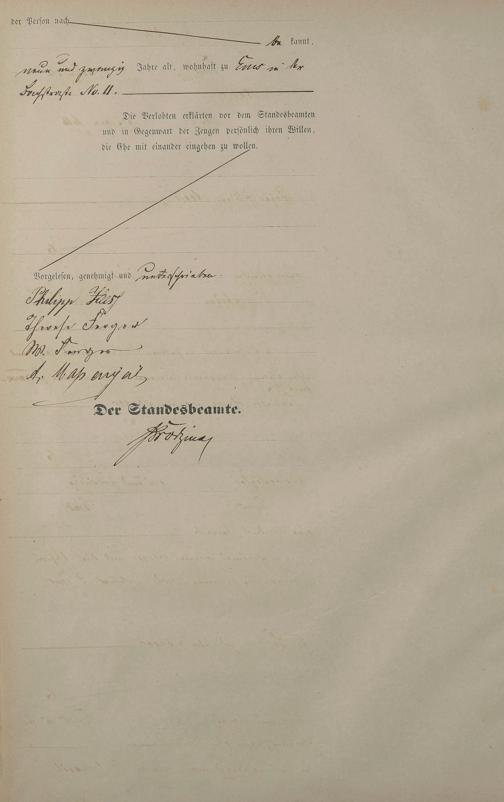 der Person nach
be kannt,
neun und zwanzig Jahre alt, wohnhaft zu Ems in der
Bachstraße No. 11.
Die Verlobten erklärten vor dem Standesbeamten
und in Gegenwart der Zeugen persönlich ihren Willen,
die Ehe mit einander eingehen zu wollen.
Vorgelesen, genehmigt und unterschrieben
Philipp
Therese Ferger
W. Ferger
A.
Der Standesbeamte.